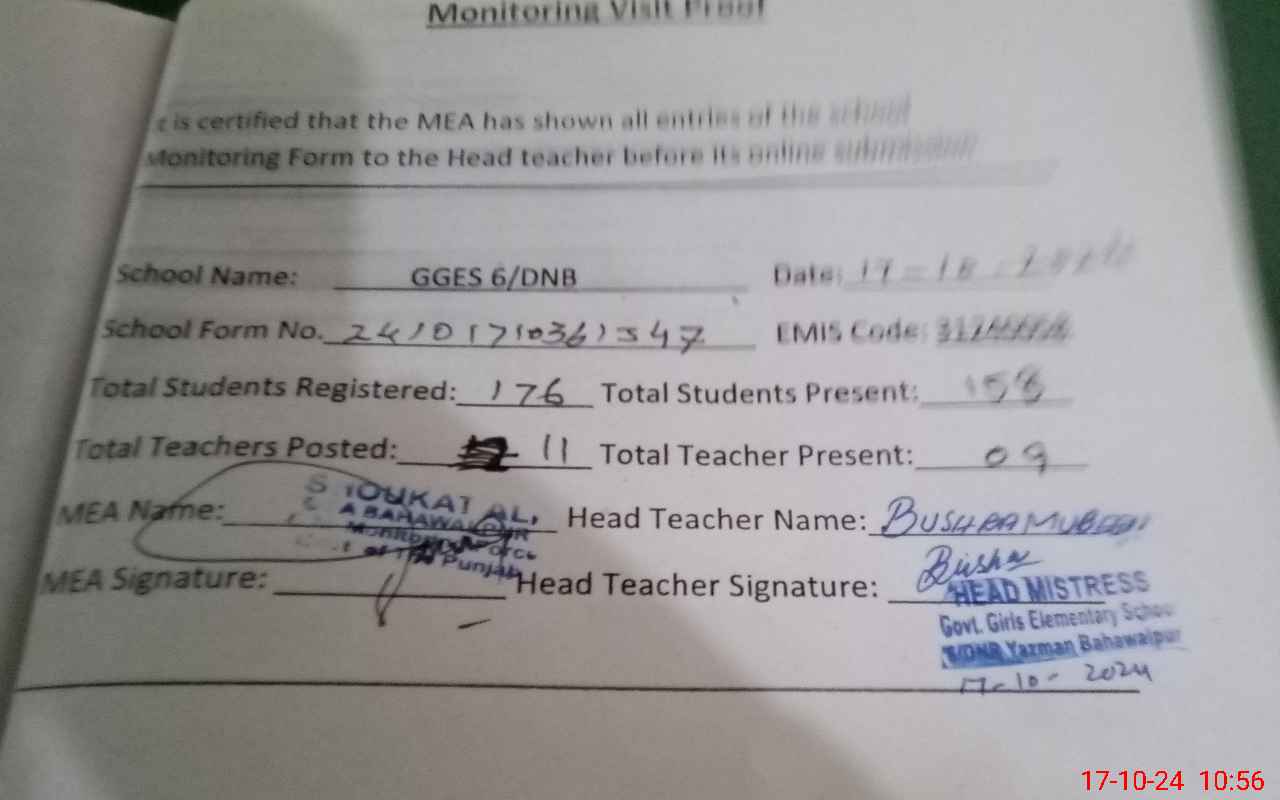 Monitoring Visit Proof
is certified that the MEA has shown all entries of the school
Monitoring Form to the Head teacher before its online submission
School Name: GGES 6/DNB Date: 17-10-2024
School Form No. EMIS Code:
Total Students Registered: 176 Total Students Present: 158
Total Teachers Posted: 11 Total Teacher Present: 09
MEA Name: SHOUKAT ALI Head Teacher Name: BUSHRA MUBEEN
A BAHAWALPUR
Monitoring Force
of The Punjab
MEA Signature: Head Teacher Signature: Bushra
HEAD MISTRESS
Govt. Girls Elementary School
6/DNB Yazman Bahawalpur
17-10-2024
17-10-24 10:56